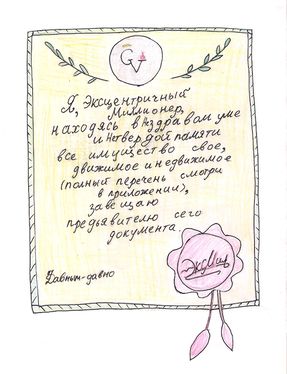 GV
Я, Эксцентричный
Миллионер,
находясь в Нездравом уме
и Нетвердой памяти
все имущество свое,
движимое и недвижимое
(полный перечень смотри
в приложении),
завещаю
предъявителю сего
документа.
Давным-давно
ЭксМил